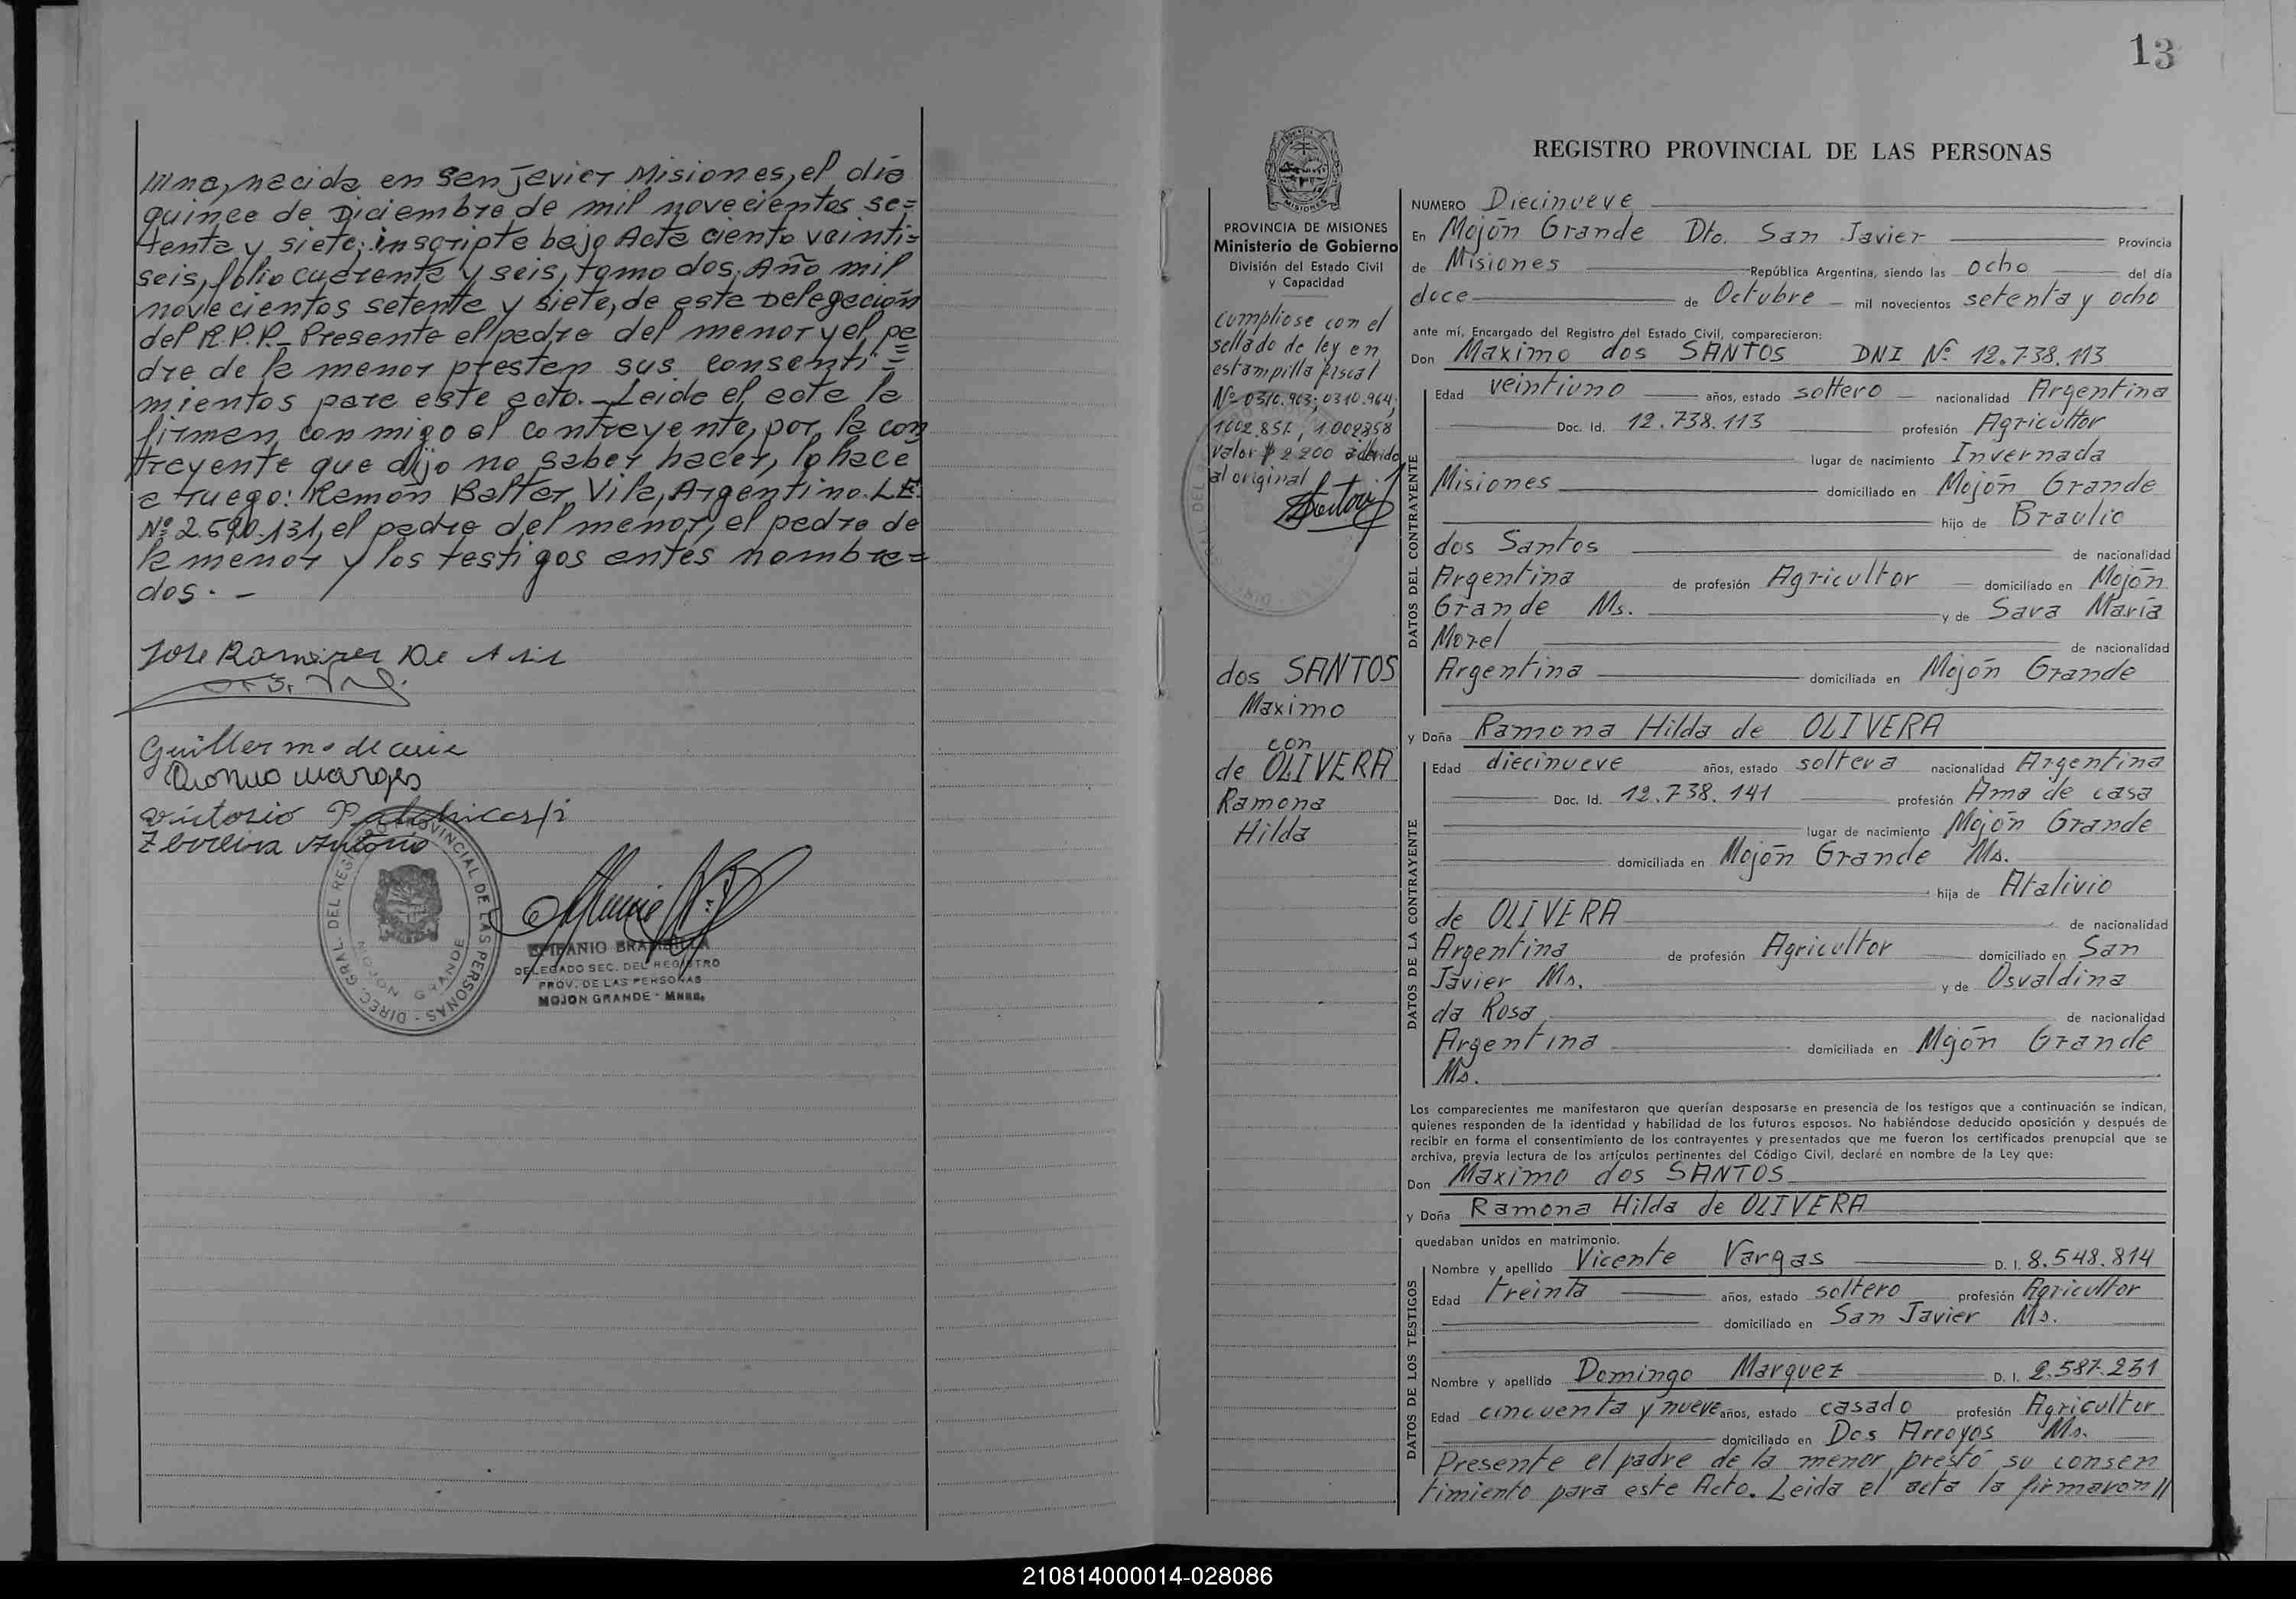 13
///na, nacida en San Javier Misiones, el día
quince de Diciembre de mil novecientos se=
tenta y siete; inscripta bajo Acta ciento veinti=
seis, folio cuarenta y seis, tomo dos. Año mil
novecientos setenta y siete, de esta Delegación
del R.P.P.- Presente el padre del menor y el pa=
dre de la menor prestan sus consenti=
mientos para este acto.- Leida el acta la
firman conmigo el contrayente, por la con
trayente que dijo no saber hacer, lo hace
a ruego: Ramón Balter Vila, Argentino. L.E.
Nº 2.590.131, el padre del menor, el padre de
la menor y los testigos antes nombra=
dos. -
Jose Ramirez De
Guillermo
Victorio
Antonio
DIREC. GRAL. DEL REGISTRO PROVINCIAL DE LAS PERSONAS
MOJON GRANDE
EPIFANIO BRAMBILLA
DELEGADO SEC. DEL REGISTRO
PROV. DE LAS PERSONAS
MOJON GRANDE - Mnes.
MISIONES
PROVINCIA DE MISIONES
Ministerio de Gobierno
División del Estado Civil
y Capacidad
Cumpliose con el
sellado de ley en
estampilla fiscal
Nº 0310.963; 0310.964;
1002.857, 1.002858
Valor $ 2.200 adherido
al original
dos SANTOS
Maximo
con
de OLIVERA
Ramona
Hilda
REGISTRO PROVINCIAL DE LAS PERSONAS
NUMERO Diecinueve
En Mojón Grande Dto. San Javier Provincia
de Misiones República Argentina, siendo las ocho del día
doce de Octubre mil novecientos setenta y ocho
ante mí, Encargado del Registro del Estado Civil, comparecieron:
Don Maximo dos SANTOS DNI Nº 12.738.113
DATOS DEL CONTRAYENTE
Edad veintiuno años, estado soltero nacionalidad Argentina
Doc. Id. 12.738.113 profesión Agricultor
lugar de nacimiento Invernada
Misiones domiciliado en Mojón Grande
hijo de Braulio
dos Santos de nacionalidad
Argentina de profesión Agricultor domiciliado en Mojón
Grande Ms. y de Sara María
Morel de nacionalidad
Argentina domiciliada en Mojón Grande
y Doña Ramona Hilda de OLIVERA
DATOS DE LA CONTRAYENTE
Edad diecinueve años, estado soltera nacionalidad Argentina
Doc. Id. 12.738.141 profesión Ama de casa
lugar de nacimiento Mojón Grande
domiciliada en Mojón Grande Ms.
hija de Atalivio
de OLIVERA de nacionalidad
Argentina de profesión Agricultor domiciliado en San
Javier Ms. y de Osvaldina
da Rosa de nacionalidad
Argentina domiciliada en Mojón Grande
Ms.
Los comparecientes me manifestaron que querían desposarse en presencia de los testigos que a continuación se indican,
quienes responden de la identidad y habilidad de los futuros esposos. No habiéndose deducido oposición y después de
recibir en forma el consentimiento de los contrayentes y presentados que me fueron los certificados prenupcial que se
archiva, previa lectura de los artículos pertinentes del Código Civil, declaré en nombre de la Ley que:
Don Maximo dos SANTOS
y Doña Ramona Hilda de OLIVERA
quedaban unidos en matrimonio.
DATOS DE LOS TESTIGOS
Nombre y apellido Vicente Vargas D. I. 8.548.814
Edad treinta años, estado soltero profesión Agricultor
domiciliado en San Javier Ms.
Nombre y apellido Domingo Marquez D. I. 2.587.231
Edad cincuenta y nueve años, estado casado profesión Agricultor
domiciliado en Dos Arroyos Ms.
Presente el padre de la menor prestó su consen
timiento para este Acto. Leida el acta la firmaron //
210814000014-028086